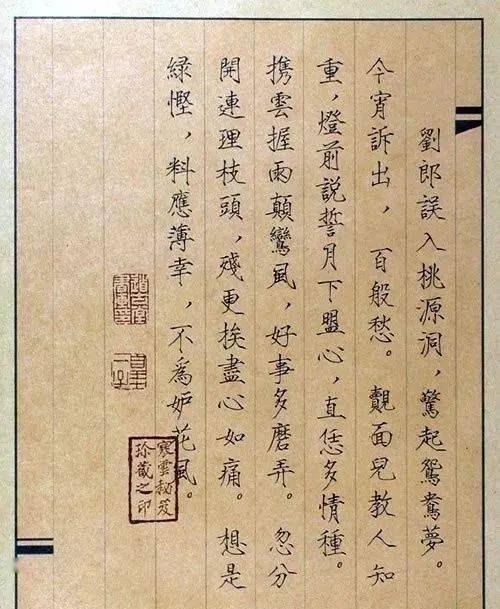 劉郎誤入桃源洞，驚起鴛鴦夢。
今宵訴出，百般愁。覿面兒教人知
重，燈前説誓月下盟心，直恁多情種。
携雲握雨顛鸞風，好事多磨弄。忽分
開連理枝頭，殘更挨盡心如痛。想是
緑慳，料應薄幸，不爲妒花風。
寒雲秘笈
珍藏之印